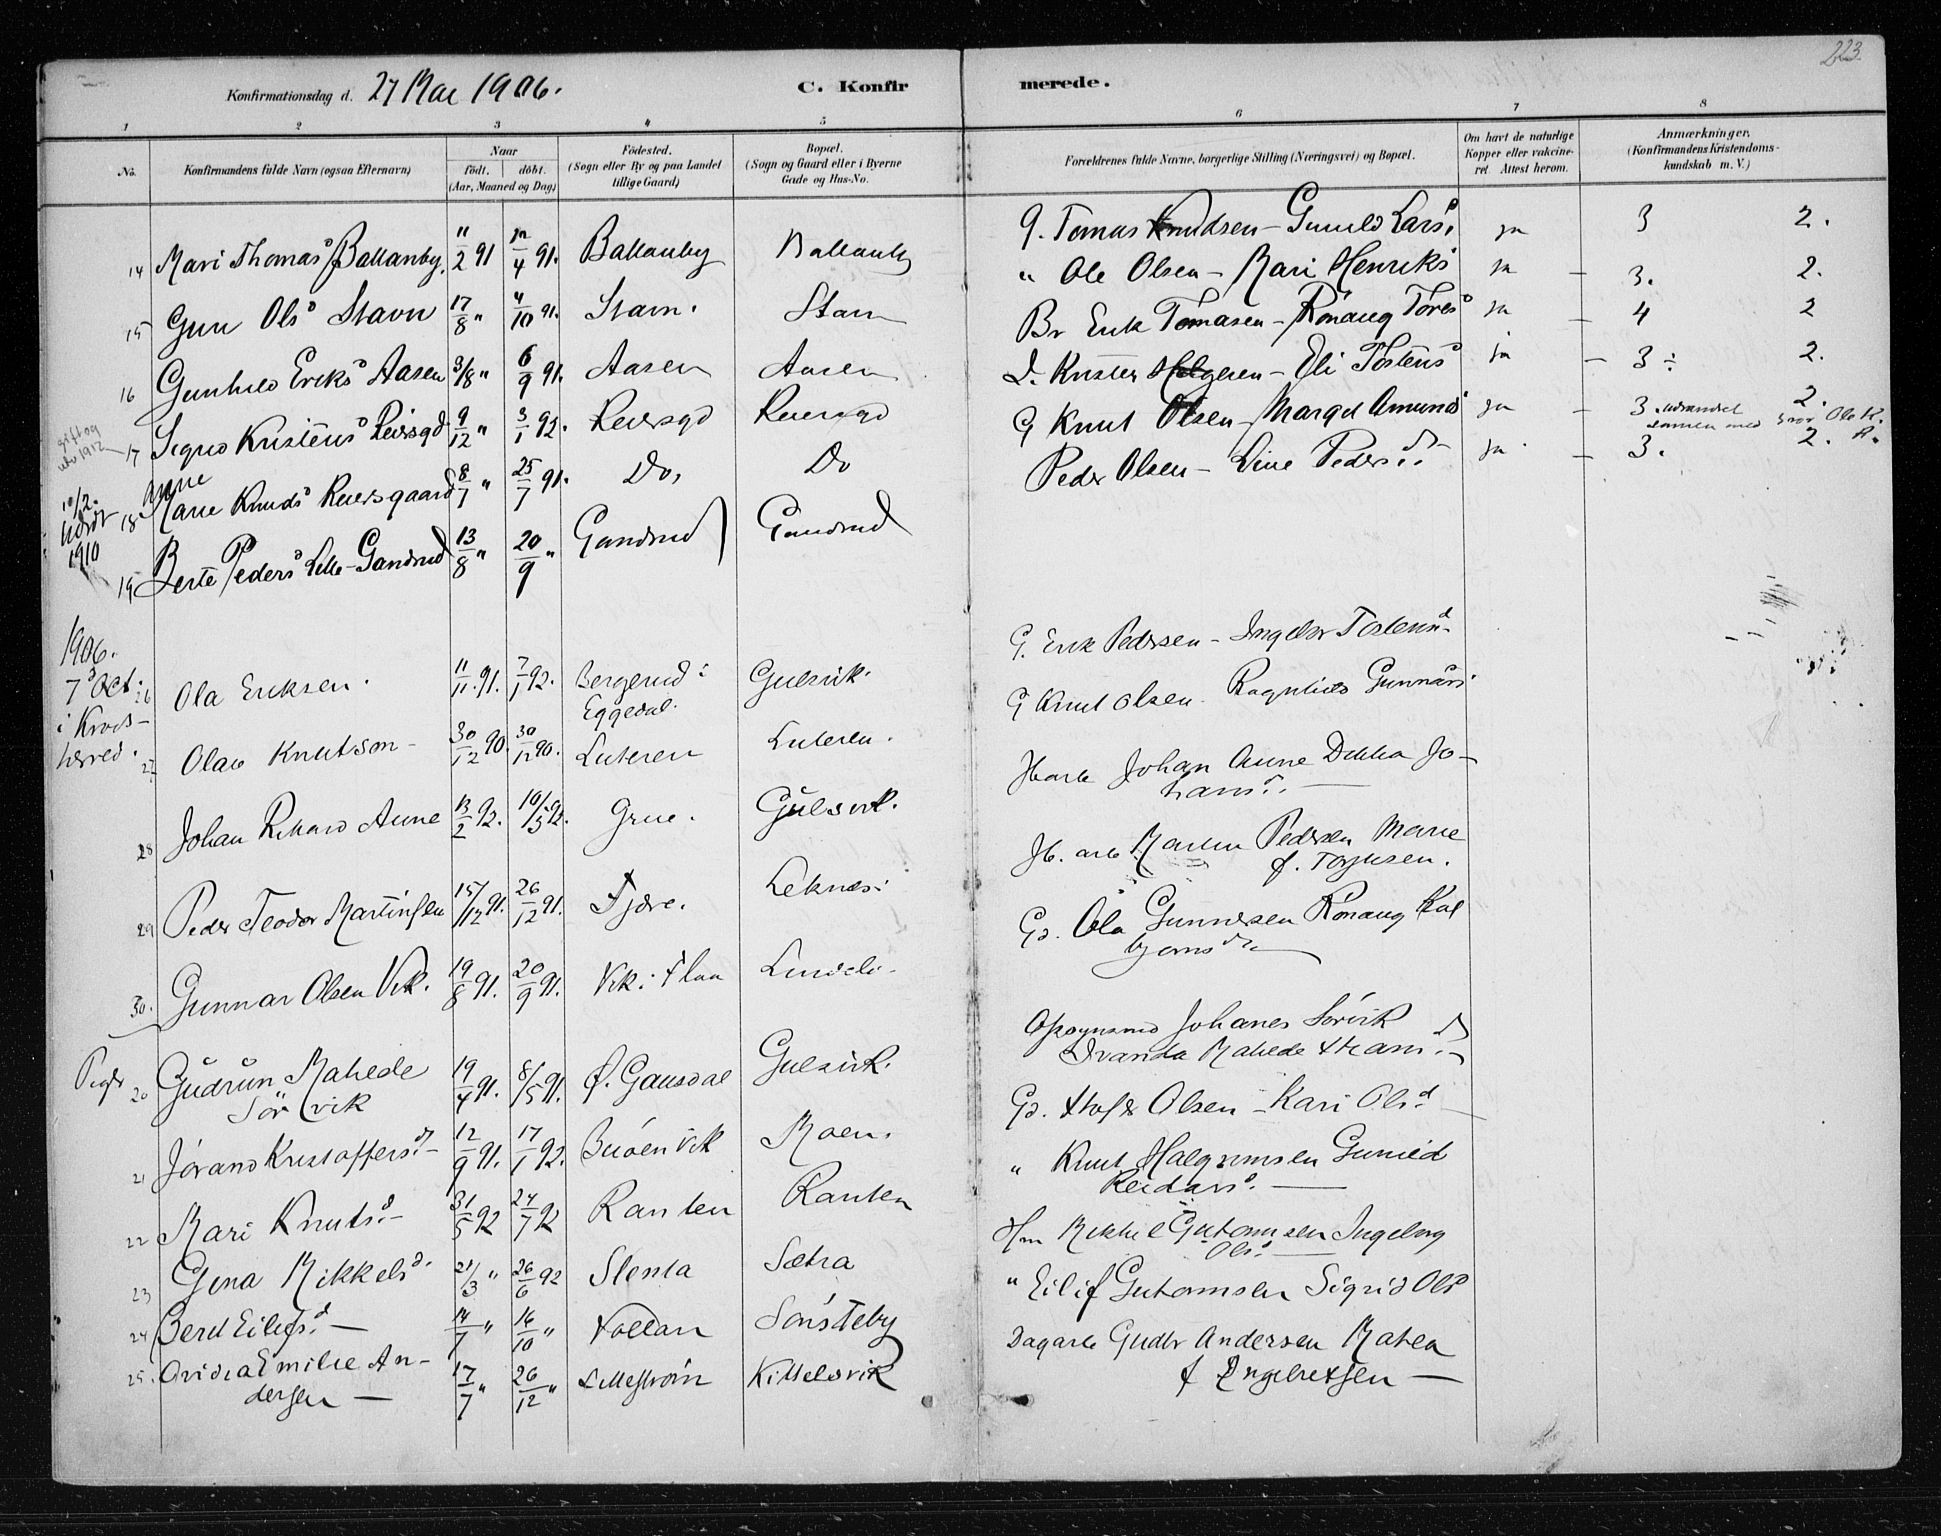 223.
Konfirmationsdag d. 27 Mai 1906.
C. Konfirmerede.
1 2 3 4 5 6 7 8
No. Konfirmandens fulde Navn (ogsaa Efternavn)
Naar født. døbt. (Aar, Maaned og Dag)
Fødested. (Sogn eller By og paa Landet tillige Gaard)
Bopæl. (Sogn og Gaard eller i Byerne Gade og Hus-No.
Forældrenes fulde Navne, borgerlige Stilling (Næringsvei) og Bopæl.
Om havt de naturlige Kopper eller vakcineret. Attest herom.
Anmærkninger. (Konfirmandens Kristendomskundskab m. V.)
14 Mari Thomasd Ballanby. 11/2 91 12/4 91. Ballanby Ballanby G. Tomas Knudsen - Gunild Larsd. ja 3 2.
15 Guri Olsd Stavn 17/8 " 4/10 91. Stavn. Stavn " Ole Olsen - Mari Henriksd ja - 3. 2.
16 Gunhild Eriksd Aasen 3/8 " 6/9 91. Aasen Aasen Br Erik Tomasen - Rønaug Toresd ja - 4 2
gift og udv 1912
17 Sigrid Kristensd Reiersgd 9/12 " 3/1 92. Reiersgd Reiersgd D. Kristen Helgesen - Eli Tostensd ja - 3 ÷ 2.
10/2. Udvdr 1910
18 Anne Marie Knudsd Reiersgaard 8/7 " 25/7 91. Do, Do G Knut Olsen - Margit Amundsd ja - 3. udvandret samen med bror Ole K. R. 2.
19 Berte Pedersd Lille-Gandrud 13/8 " 20/9 " Gandrud Gandrud Peder Olsen - Line Pedersd. ja - 3. 2.
1906.
7d Oct. i Krødsherred.
26 Ola Eriksen. 11/11. 91. 7/1 92. Bergerud i Eggedal. Gulsvik. G. Erik Pedersen - Ingebor Tostensd.
27 Olav Knutson - 30/12 90. 30/12 90. Luteren Luteren. G Knut Olsen. Ragnhild Gunnarsd.
28 Johan Rikard Aune 13/2 92. 10/5 92. Grue. Gulsvik. Jb arb Johan Aune Dikka Johansd. —
29 Peder Teodor Martinsen 15/12 91. 26/12 91. Fjære. Leknes: Jb. arb Martin Pedersen Marie f. Torjusen.
30. Gunnar Olsen Vik. 19/8 91. 20/9 91. Vik. i Flaa Lindeli. Gd. Ola Gunnersen Rønaug Kolbjørnsdtr
Piger
20 Gudrun Matilde Sørvik 19/4 91. 8/5 91. Ø. Gausdal Gulsvik. Johanes Sørvik
21 Jørand Kristoffersd. - 12/9 91. 17/1 92. Buøen Vik Moen. Gd. Kristofr Olsen - Kari Olsd. —
22 Mari Knutsd. - 31/5 92 24/7 92 Ranten Ranten " Knut Halgrimsen Gunild Reidarsd. —
23 Gina Mikkelsd. 21/3 " 26/6 92 Slenta Sætra Hm Mikkel Guttormsen Ingeborg Olsd. —
24 Berit Eilifsd. — 14/7 " 16/10 " Vollan Sønsteby " Eilif Guttormsen Sigrid Olsd
25. Ovidia Emilie Andersen — 17/7 " 26/12 " Lillestrøm Kittelsvik Dagarb Gudbr Andersen Matea f Engebretsen —